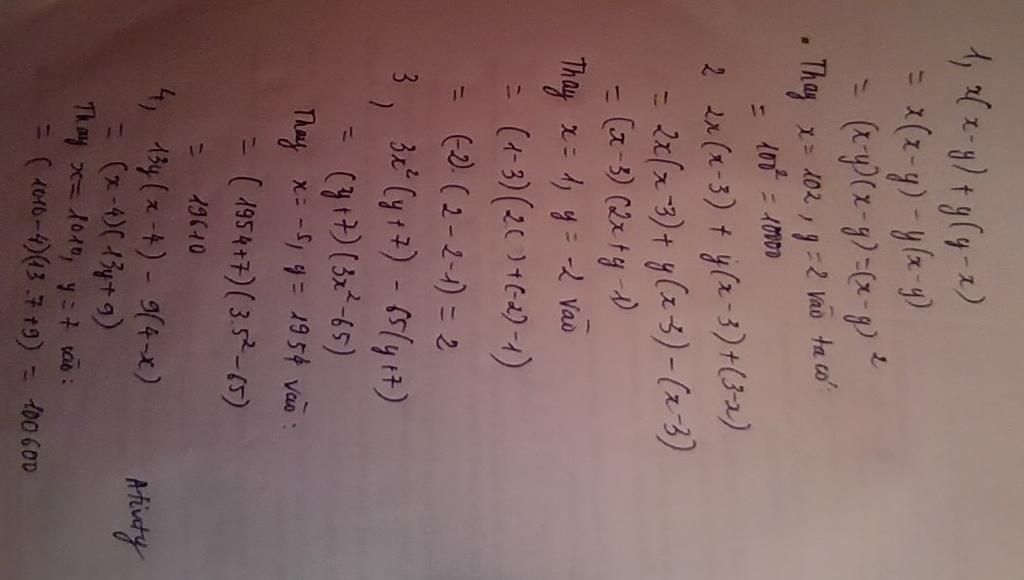 1, x(x-y) + y(y-x)
= x(x-y) - y(x-y)
= (x-y)(x-y) = (x-y)²
Thay x = 102, y = 2 vào ta có:
= 100² = 10000
2 2x(x-3) + y(x-3) + (3-x)
= 2x(x-3) + y(x-3) - (x-3)
= (x-3)(2x+y-1)
Thay x = 1, y = -2 vào
= (1-3)(2() + (-2) - 1)
= (-2) · (2 - 2 - 1) = 2
3, 3x²(y+7) - 65(y+7)
= (y+7)(3x²-65)
Thay x = -5, y = 1954 vào:
= (1954+7)(3.5²-65)
= 19610
4, 13y(x-4) - 9(4-x)
= (x-4)(13y+9)
Thay x = 1010, y = 7 vào:
= (1010-4)(3.7+9) = 100600
Ativaty